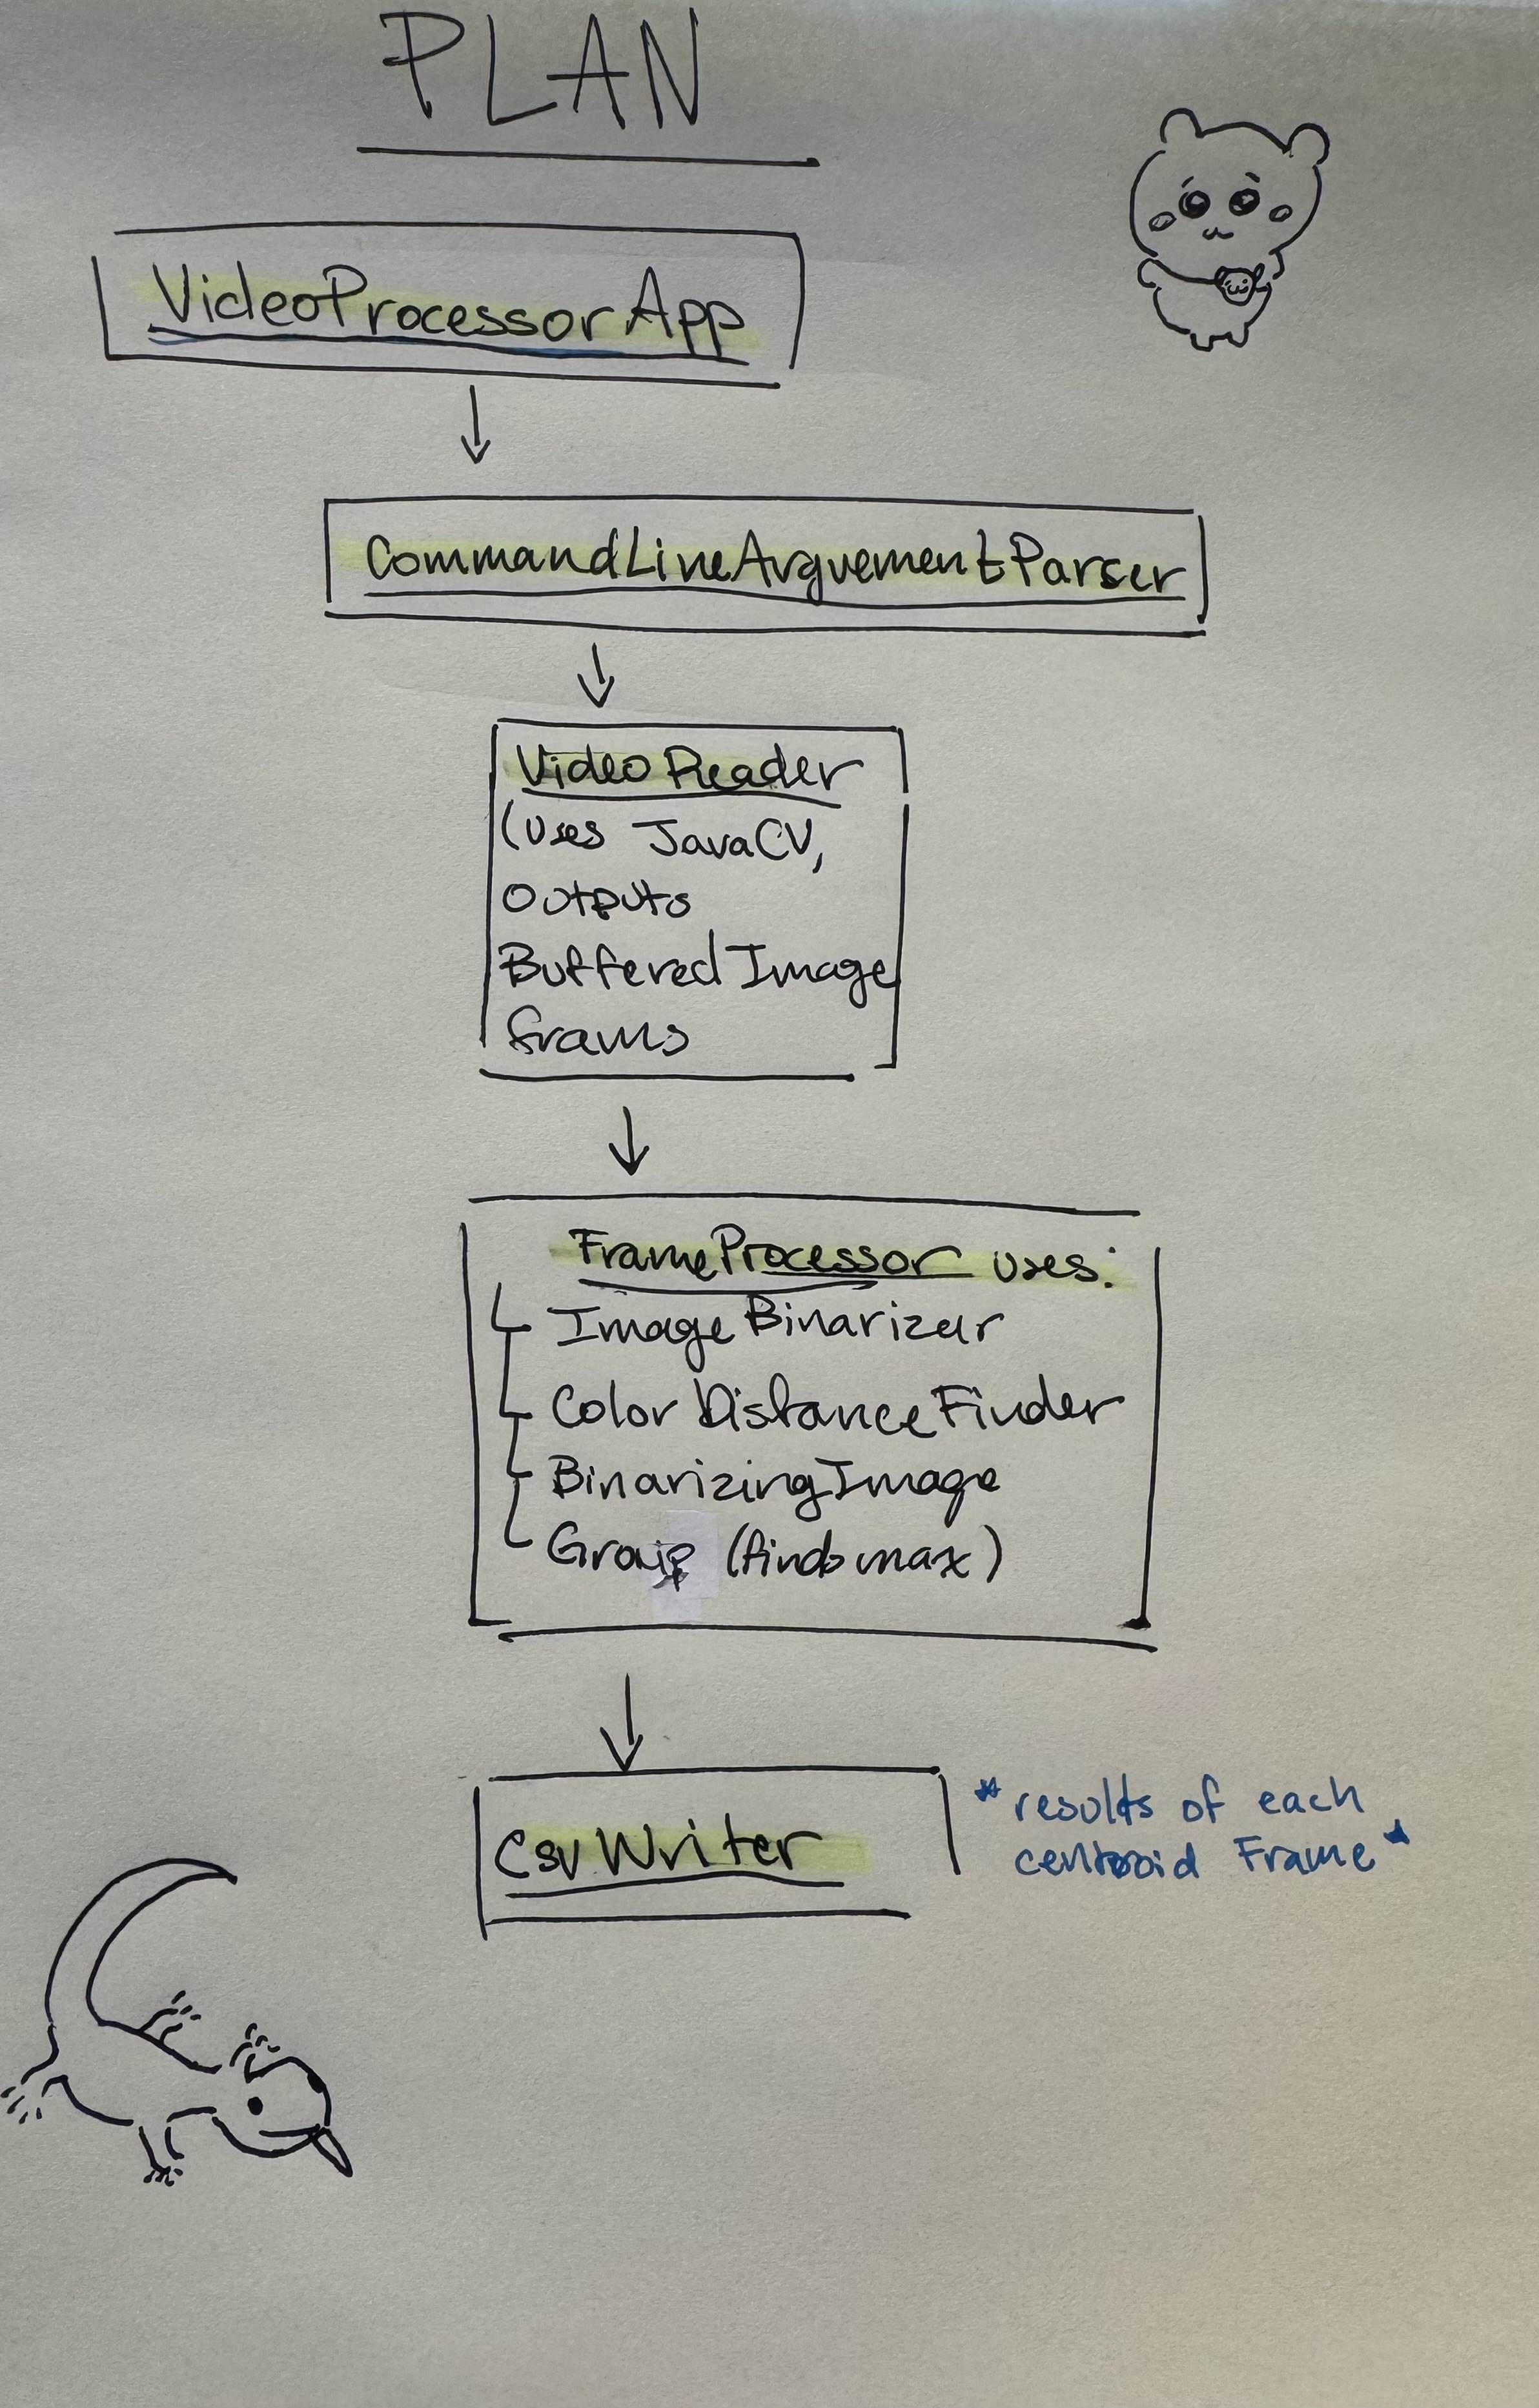 PLAN
VideoProcessorApp
CommandLineArguementParser
VideoReader
(uses JavaCV,
outputs
BufferedImage
frams
FrameProcessor uses:
ImageBinarizer
ColorDistanceFinder
BinarizingImage
Group (finds max)
CsvWriter
*results of each
centroid Frame*